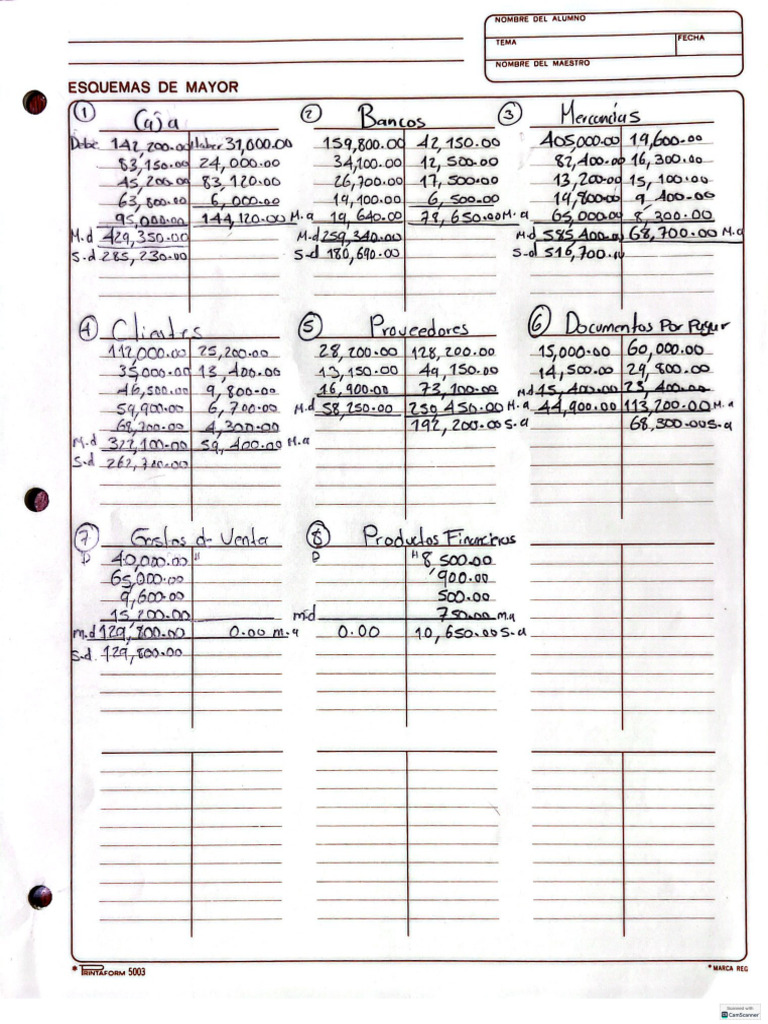 NOMBRE DEL ALUMNO
TEMA
FECHA
NOMBRE DEL MAESTRO
ESQUEMAS DE MAYOR
1 Caja
Debe 142,200.00 Haber 31,000.00
83,150.00 24,000.00
45,200.00 83,120.00
63,800.00 6,000.00
95,000.00 144,120.00 M.a
M.d 429,350.00
S.d 285,230.00
2 Bancos
159,800.00 42,150.00
34,100.00 12,500.00
26,700.00 17,500.00
19,100.00 6,500.00
19,640.00 78,650.00 M.a
M.d 259,340.00
S.d 180,690.00
3 Mercancías
405,000.00 19,600.00
82,400.00 16,300.00
13,200.00 15,100.00
19,800.00 9,400.00
65,000.00 8,300.00
M.d 585,400.00 68,700.00 M.a
S.d 516,700.00
4 Clientes
112,000.00 25,200.00
35,000.00 13,400.00
46,500.00 9,800.00
59,900.00 6,700.00
68,700.00 4,300.00
M.d 322,100.00 59,400.00 M.a
S.d 262,700.00
5 Proveedores
28,200.00 128,200.00
13,150.00 49,150.00
16,900.00 73,100.00
M.d 58,250.00 250,450.00 M.a
192,200.00 S.a
6 Documentos Por Pagar
15,000.00 60,000.00
14,500.00 29,800.00
M.d 15,400.00 23,400.00
44,900.00 113,200.00 M.a
68,300.00 S.a
7 Gastos de Venta
D 40,000.00 H
65,000.00
9,600.00
15,200.00
m.d 129,800.00 0.00 m.a
S.d. 129,800.00
8 Productos Financieros
D H 8,500.00
900.00
500.00
m.d 750.00 m.a
0.00 10,650.00 S.a
* PRINTAFORM 5003
* MARCA REG
Scanned with
CS CamScanner